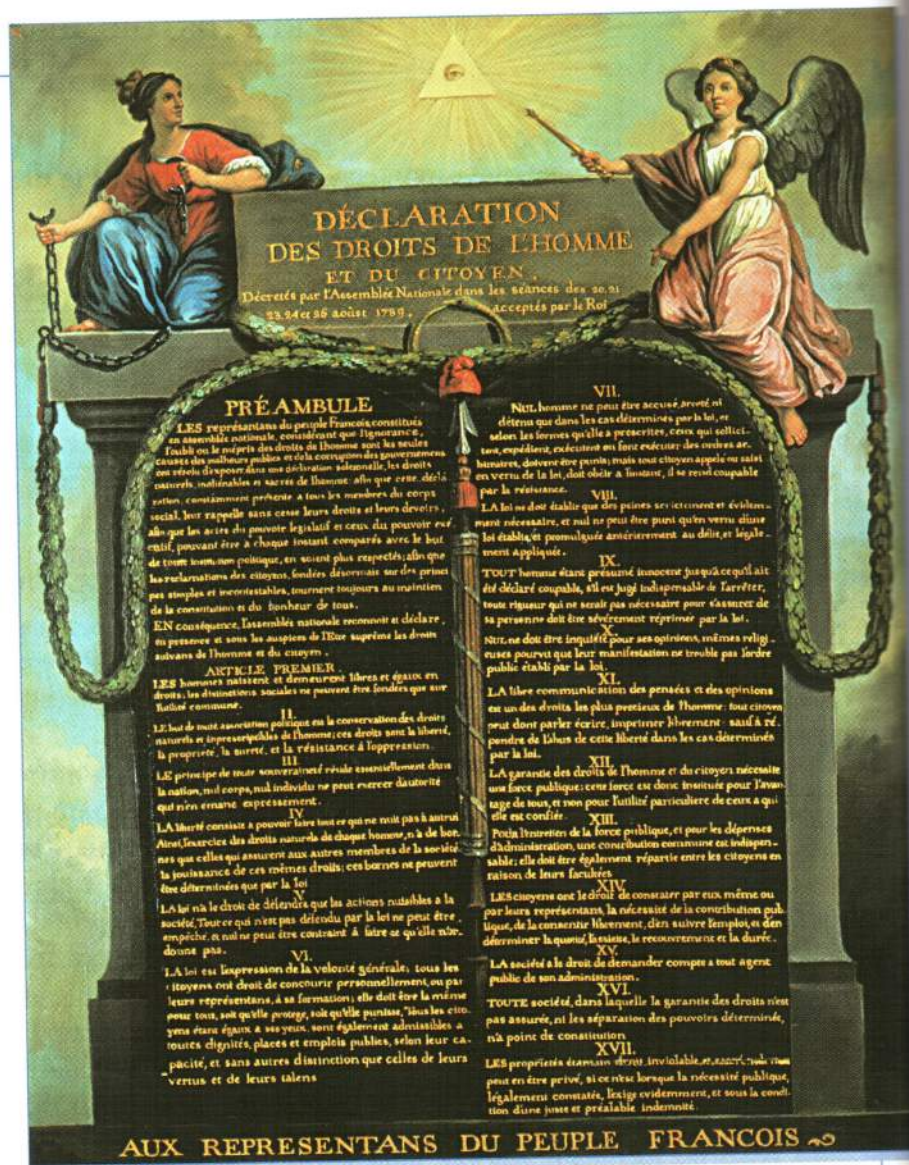 DÉCLARATION
DES DROITS DE L'HOMME
ET DU CITOYEN.
Décretés par l'Assemblée Nationale dans les séances des 20. 21
23. 24 et 26 aoûst 1789, acceptés par le Roi
PRÉAMBULE
LES représentans du peuple François, constitués
en assemblée nationale, considérant que l'ignorance,
l'oubli ou le mépris des droits de l'homme sont les seules
causes des malheurs publics et de la corruption des gouvernemens
ont résolu d'exposer dans une déclaration solemnelle, les droits
naturels, inaliénables et sacrés de l'homme: afin que cette décla
ration, constamment présente a tous les membres du corps
social, leur rappelle sans cesse leurs droits et leurs devoirs,
afin que les actes du pouvoir législatif et ceux du pouvoir exé
cutif, pouvant être à chaque instant comparés avec le but
de toute institution politique, en soient plus respectés; afin que
les reclamations des citoyens, fondées désormais sur des princi
pes simples et incontestables, tournent toujours au maintien
de la constitution et du bonheur de tous.
EN conséquence, l'assemblée nationale reconnoit et déclare,
en presence et sous les auspices de l'Etre suprême les droits
suivans de l'homme et du citoyen.
ARTICLE PREMIER.
LES hommes naissent et demeurent libres et égaux en
droits; les distinctions sociales ne peuvent être fondées que sur
l'utilité commune.
II.
LE but de toute association politique est la conservation des droits
naturels et imprescriptibles de l'homme; ces droits sont la liberté,
la propriété, la sureté, et la résistance à l'oppression.
III.
LE principe de toute souveraineté réside essentiellement dans
la nation, nul corps, nul individu ne peut exercer d'autorité
qui n'en emane expressement.
IV.
LA liberté consiste a pouvoir faire tout ce qui ne nuit pas à autrui
Ainsi, l'exercice des droits naturels de chaque homme, n'a de bor-
nes que celles qui assurent aux autres membres de la société
la jouissance de ces mêmes droits; ces bornes ne peuvent
être déterminées que par la loi
V.
LA loi n'a le droit de défendre que les actions nuisibles a la
société, Tout ce qui n'est pas défendu par la loi ne peut être
empêché, et nul ne peut être contraint à faire ce qu'elle n'or-
donne pas.
VI.
LA loi est l'expression de la volonté générale; tous les
citoyens ont droit de concourir personnellement, ou par
leurs représentans, à sa formation; elle doit être la même
pour tous, soit qu'elle protege, soit qu'elle punisse, Tous les cito-
yens étant égaux à ses yeux, sont également admissibles a
toutes dignités, places et emplois publics, selon leur ca-
pacité, et sans autres distinction que celles de leurs
vertus et de leurs talens
VII.
NUL homme ne peut être accusé, arreté, ni
détenu que dans les cas déterminés par la loi, et
selon les formes qu'elle a prescrites, ceux qui sollici-
tent, expédient, exécutent ou font exécuter des ordres ar-
bitraires, doivent être punis; mais tout citoyen appelé ou saisi
en vertu de la loi, doit obéir a l'instant, il se rend coupable
par la résistance.
VIII.
LA loi ne doit établir que des peines strictement et évidem-
ment nécessaire, et nul ne peut être puni qu'en vertu d'une
loi établie, et promulguée antérieurement au délit, et légale-
ment appliquée.
IX.
TOUT homme étant présumé innocent jusqu'a ce qu'il ait
été déclaré coupable, s'il est jugé indispensable de l'arrêter,
toute rigueur qui ne serait pas nécessaire pour s'assurer de
sa personne doit être sévèrement réprimée par la loi.
X.
NUL ne doit être inquiété pour ses opinions, mêmes religi-
euses pourvu que leur manifestation ne trouble pas l'ordre
public établi par la loi.
XI.
LA libre communication des pensées et des opinions
est un des droits les plus precieux de l'homme: tout citoyen
peut dont parler écrire, imprimer librement: sauf à ré-
pondre de l'abus de cette liberté dans les cas déterminés
par la loi.
XII.
LA garantie des droits de l'homme et du citoyen nécessite
une force publique: cette force est donc instituée pour l'avan-
tage de tous, et non pour l'utilité particuliere de ceux a qui
elle est confiée.
XIII.
POUR l'entretien de la force publique, et pour les dépenses
d'administration, une contribution commune est indispen-
sable; elle doit être également répartie entre les citoyens en
raison de leurs facultées
XIV.
LES citoyens ont le droit de constater par eux même ou
par leurs représentans, la nécessité de la contribution pub-
lique, de la consentir librement, d'en suivre l'emploi, et d'en
déterminer la quotité, l'assiette, le recouvrement et la durée.
XV.
LA société a le droit de demander compte a tout agent
public de son administration.
XVI.
TOUTE société, dans laquelle la garantie des droits n'est
pas assurée, ni les séparation des pouvoirs déterminée,
n'a point de constitution
XVII.
LES proprietés étant un droit inviolable et sacré, nul ne
peut en être privé, si ce n'est lorsque la nécessité publique,
légalement constatée, l'exige evidemment, et sous la condi-
tion d'une juste et préalable indemnité.
AUX REPRESENTANS DU PEUPLE FRANCOIS